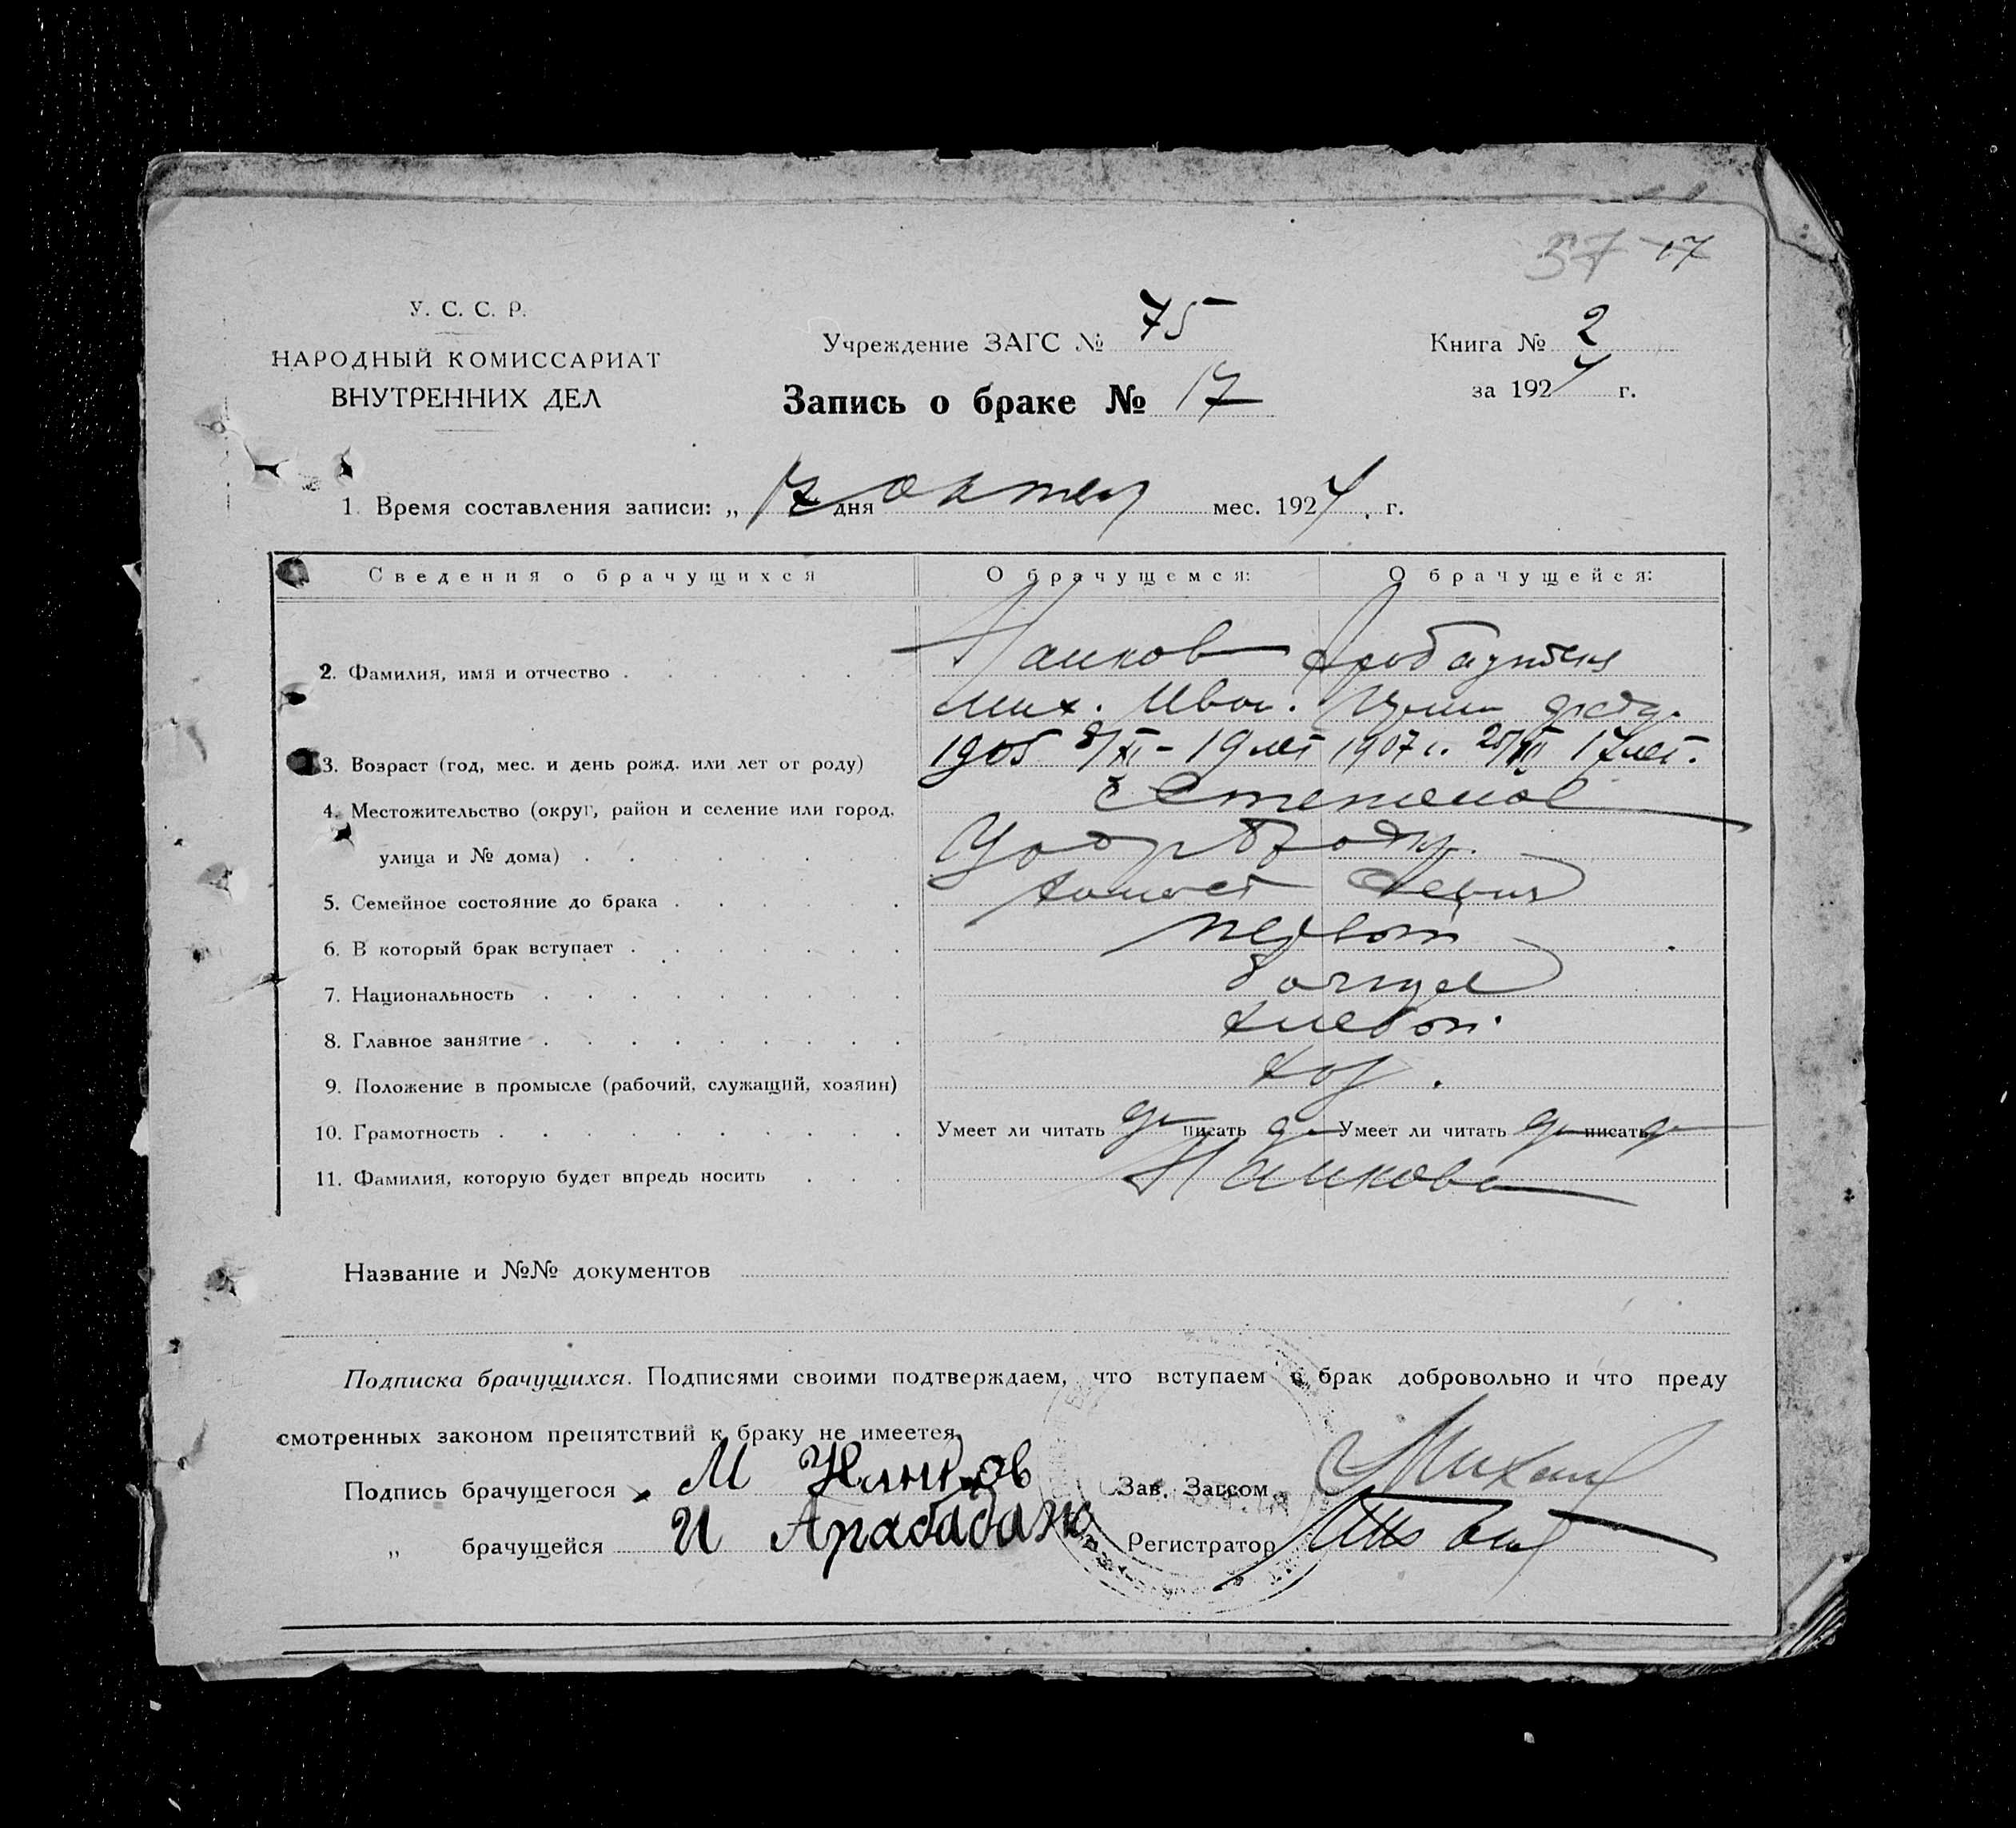 57 17
У. С. С. Р.
НАРОДНЫЙ КОМИССАРИАТ
ВНУТРЕННИХ ДЕЛ
Учреждение ЗАГС № 75
Книга № 2
за 1924 г.
Запись о браке № 17
1. Время составления записи: „ 17 дня октяб мес. 1924 г.
Сведения о брачущихся О брачущемся: О брачущейся:
2. Фамилия, имя и отчество
Мих. Иван.
3. Возраст (год, мес. и день рожд. или лет от роду) 1905 8/XI - 19 лет 1907 г. 17 лет.
4. Местожительство (округ, район и селение или город,
улица и № дома)
5. Семейное состояние до брака холост девица
6. В который брак вступает первый
7. Национальность болгаре
8. Главное занятие хлебоп.
9. Положение в промысле (рабочий, служащий, хозяин) хоз.
10. Грамотность Умеет ли читать да писать да Умеет ли читать да писать да
11. Фамилия, которую будет впредь носить
Название и №№ документов
Подписка брачущихся. Подписями своими подтверждаем, что вступаем в брак добровольно и что преду
смотренных законом препятствий к браку не имеется.
Подпись брачущегося М
Зав. Загсом
„ брачущейся И
Регистратор